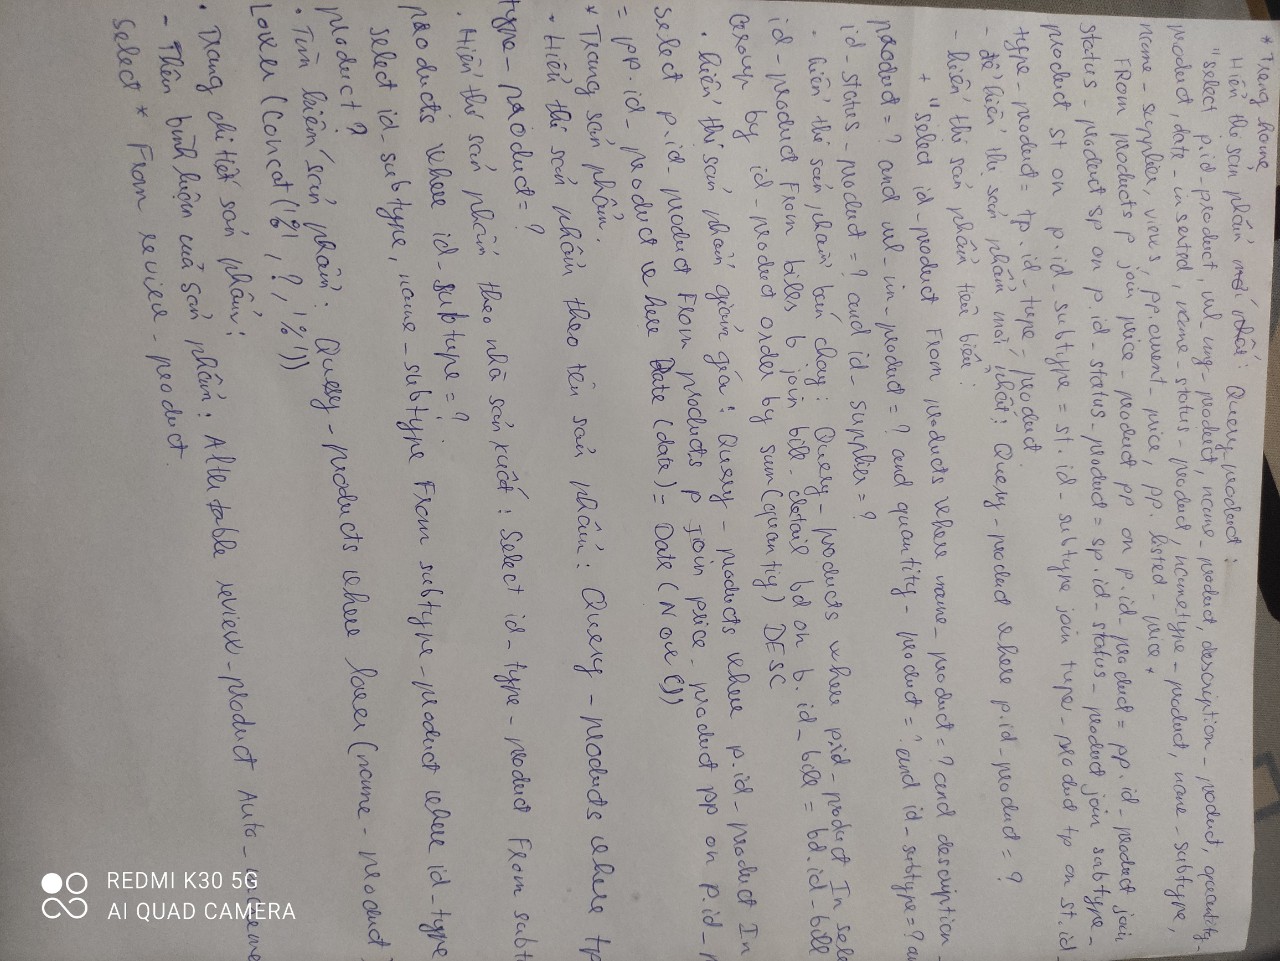 * Trang home
Hiển thị sản phẩm mới nhất: Query_product:
"select p.id_product, url_img_product, name_product, description_product, quantity_
product, date_inserted, name_status_product, nametype_product, name_subtype,
name_supplier, views, pp.current_price, pp.listed_price
FRom products p join price_product pp on p.id_product = pp.id_product join
status_product sp on p.id_status_product = sp.id_status_product join subtype_
product st on p.id_subtype = st.id_subtype join type_product tp on st.id_
type_product = tp.id_type_product
- để hiển thị sản phẩm mới nhất: Query_product where p.id_product = ?
- hiển thị sản phẩm tiêu biểu:
+ "select id_product From products where name_product = ? and description_
product = ? and url_im_product = ? and quantity_product = ? and id_subtype = ? an
id_status_product = ? and id_supplier = ?
. hiển thị sản phẩm bán chạy: Query_products where p.id_product In sele
id_product From bills b join bill_detail bd on b.id_bill = bd.id_bill
Group by id_product order by sum(quantiy) DESC
. hiển thị sản phẩm giảm giá: Query_products where p.id_product In
select p.id_product From products p Join price_product pp on p.id_p
= pp.id_product where Date (date) = Date (Now())
* Trang sản phẩm.
- Hiển thị sản phẩm theo tên sản phẩm: Query_products where tp
type_product = ?
. Hiển thị sản phẩm theo nhà sản xuất: Select id_type_product From subt
products where id_subtype = ?
select id_subtype, name_subtype From subtype_product where id_type
product ?
. Tìm kiếm sản phẩm: Query_products where lower (name_product)
Lower (Concat('%', ?, '%'))
. Trang chi tiết sản phẩm:
- Thêm bình luận của sản phẩm: Alter table review_product Auto_increme
Select * From review_product.
REDMI K30 5G
AI QUAD CAMERA